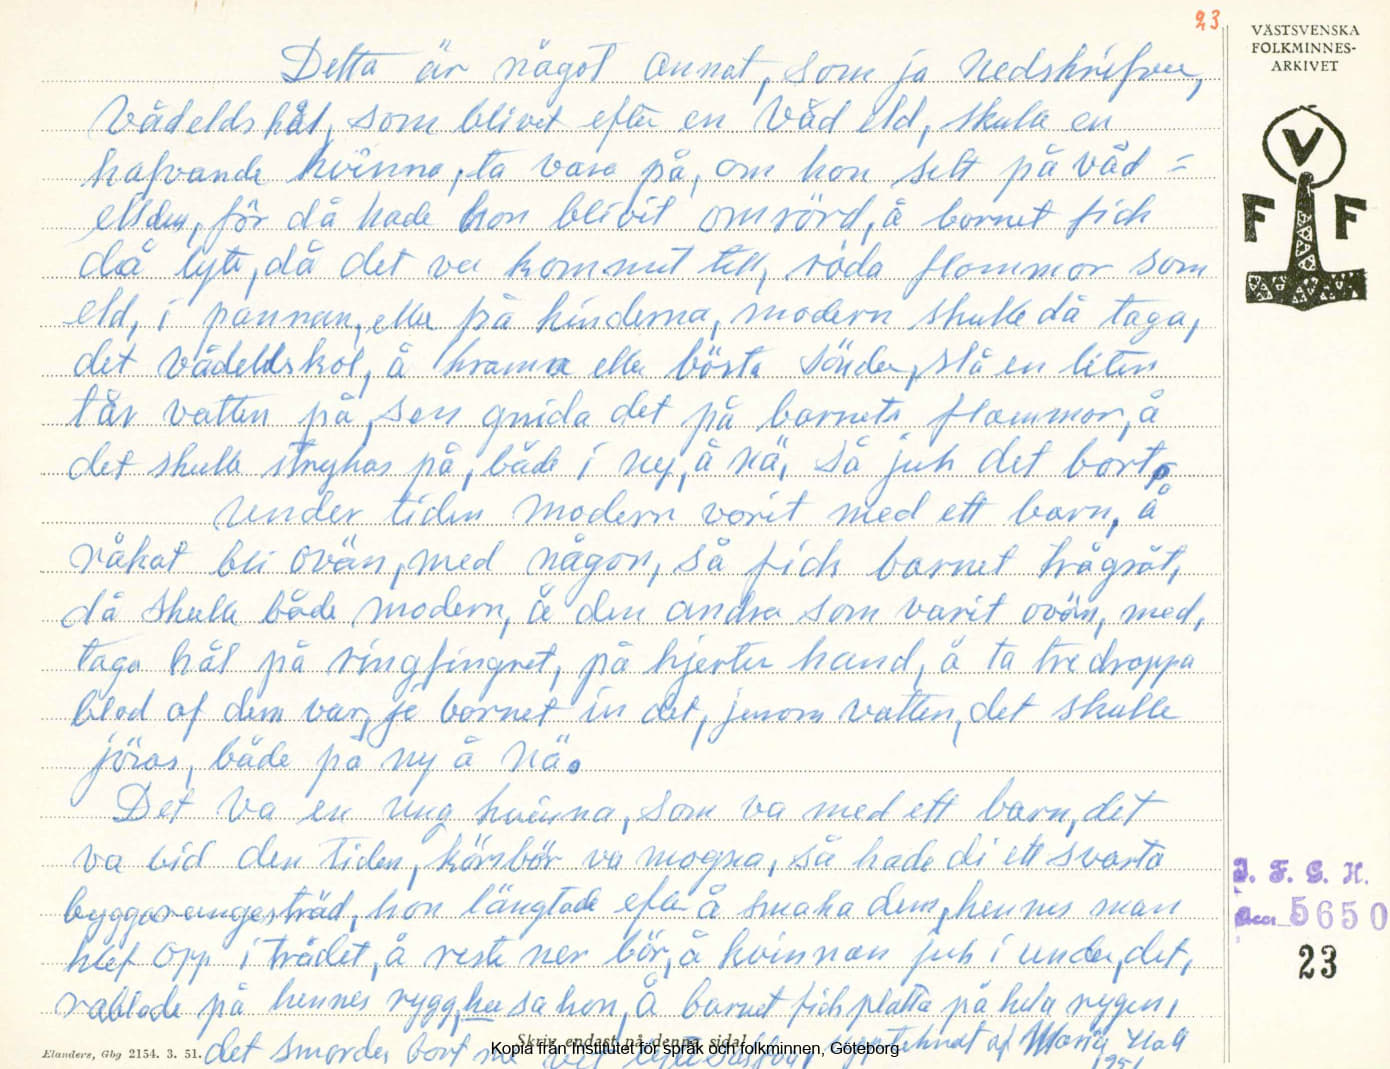 23
VÄSTSVENSKA
FOLKMINNES-
ARKIVET
V
F F
Detta är något annat, som ja nedskrifver,
vådelds kål, som blivet efter en våd eld, skulle en
hafvande kvinna, ta vara på, om hon sett på våd =
elden, för då hade hon blivit omrörd, å barnet fick
då lyte, då det va kommit till, röda flammor som
eld, i pannan, eller på kinderna, modern skulle då taga,
det vådeldskol, å krama eller bösta sönder, slå en liten
tår vatten på, sen gnida det på barnets flammor, å
det skulle strykas på, både i ny, å nä, så juh det bort.
under tiden modern vorit med ett barn, å
råkat bli ovän, med någon, så fick barnet trågråt,
då skulle både modern, å den andra som varit ovän, med,
taga hål på ringfingret, på hjerter hand, å ta tre droppa
blod af dem var, je barnet in det, jenom vatten, det skulle
jöras, både på ny å nä.
Det va en ung kvinna, som va med ett barn, det
va vid den tiden, körsbör va mogna, så hade di ett svarta
träd, hon längtade efter å smaka dem, hennes man
klef opp i trädet, å reste ner bör, å kvinnan juh i under, det,
rablade på hennes rygg, hu sa hon, å barnet fich platta på hela rygen,
det smordes bort me upptehnat af Maria Hall
1951
Skriv endast på denna sida!
Elanders, Gbg 2154. 3. 51.
Kopia från Institutet för språk och folkminnen, Göteborg
I. F. G. H.
Acc. 5650
23